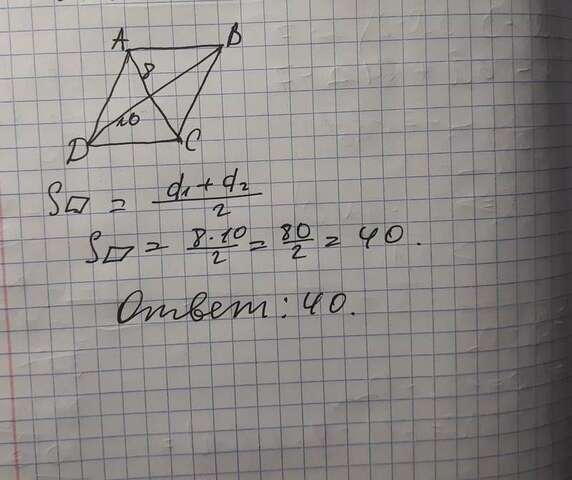 A B
8
10
D C
S▱ = d₁ + d₂ / 2
S▱ = 8·10 / 2 = 80 / 2 = 40.
Ответ: 40.